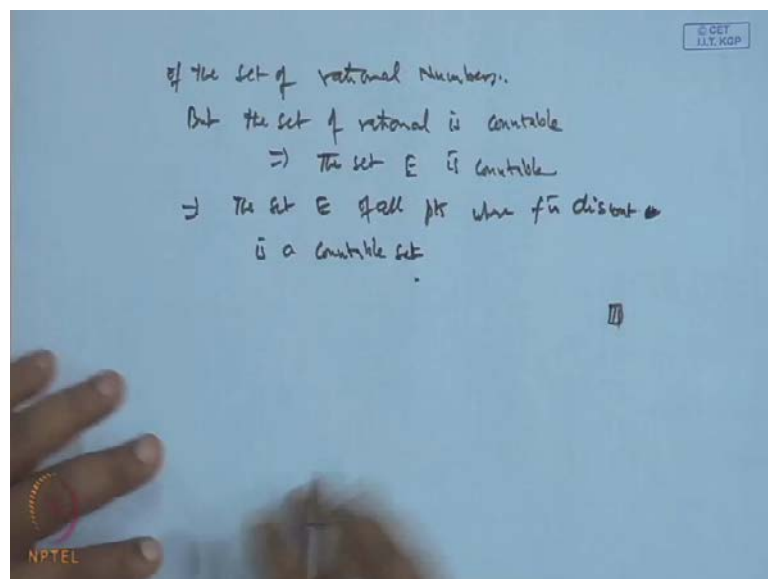 © CET
I.I.T. KGP
of the set of rational Numbers..
But the set of rational is countable
=) The set E is countable
=) The set E of all pts where f is discont
is a countable set
NPTEL